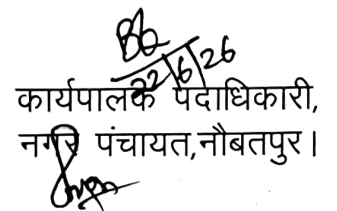 22/6/26
कार्यपालक पदाधिकारी,
नगर पंचायत,नौबतपुर।